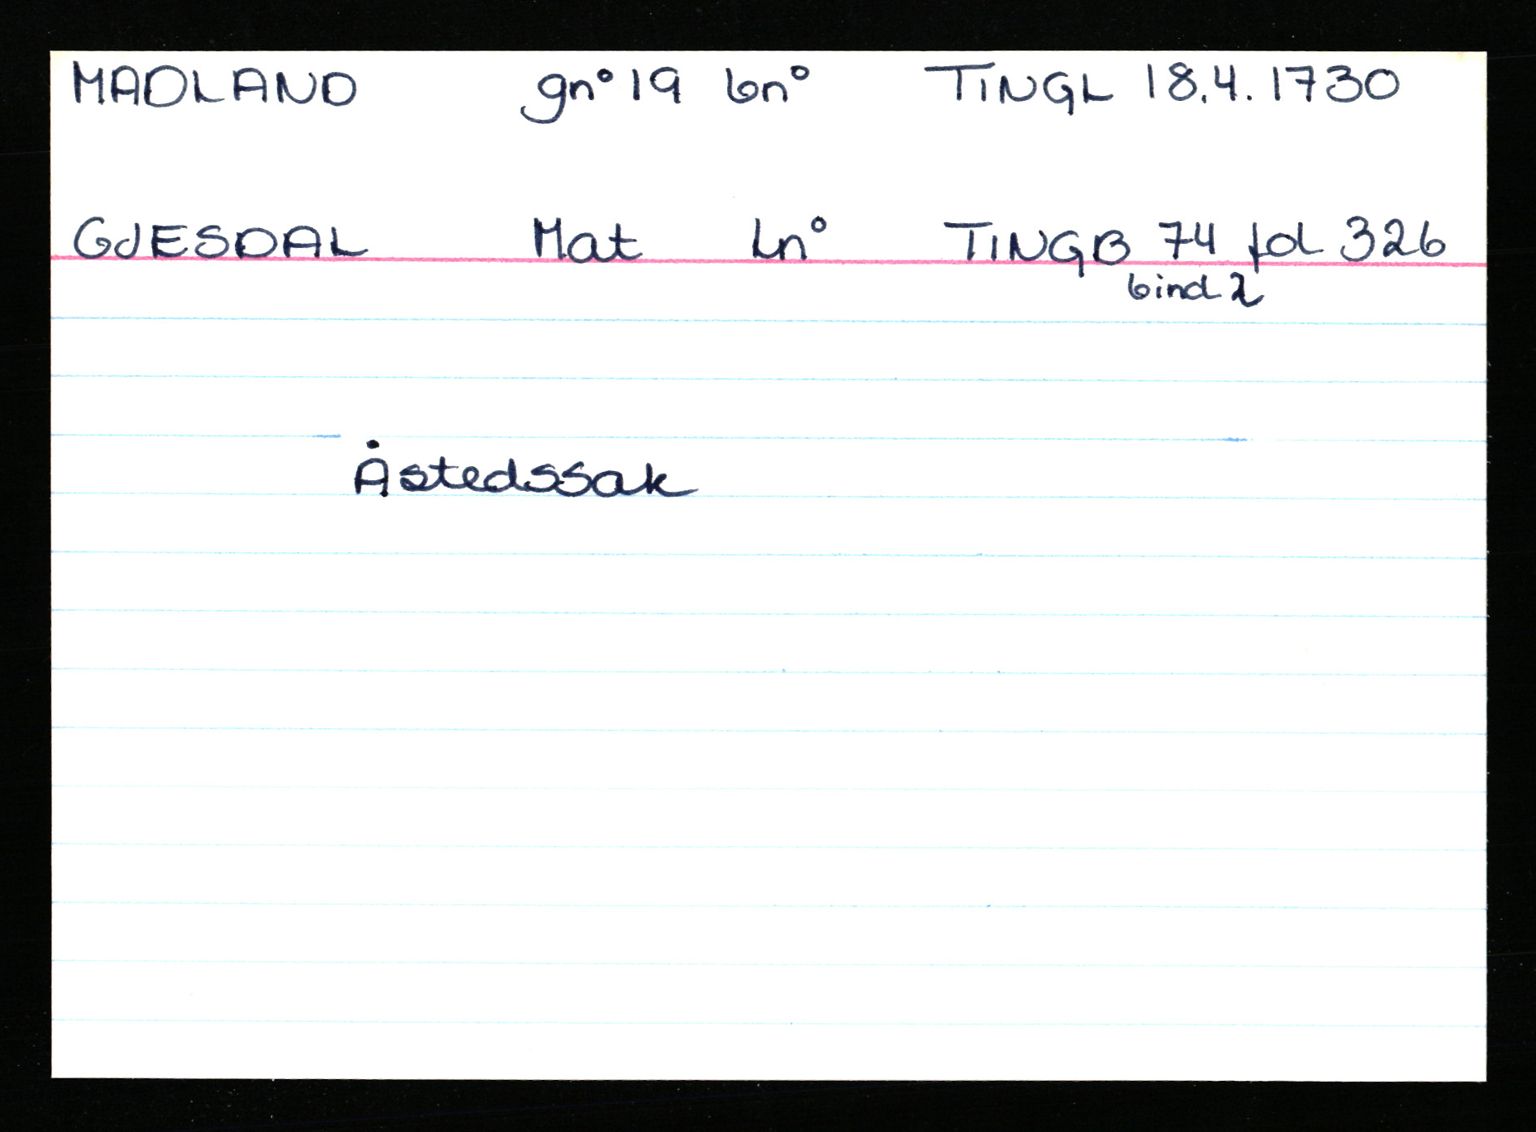 MADLAND gnº 19 bnº TINGL 18.4.1730
GJESDAL Mat Lnº TINGB 74 fol 326
bind 2
Åstedssak